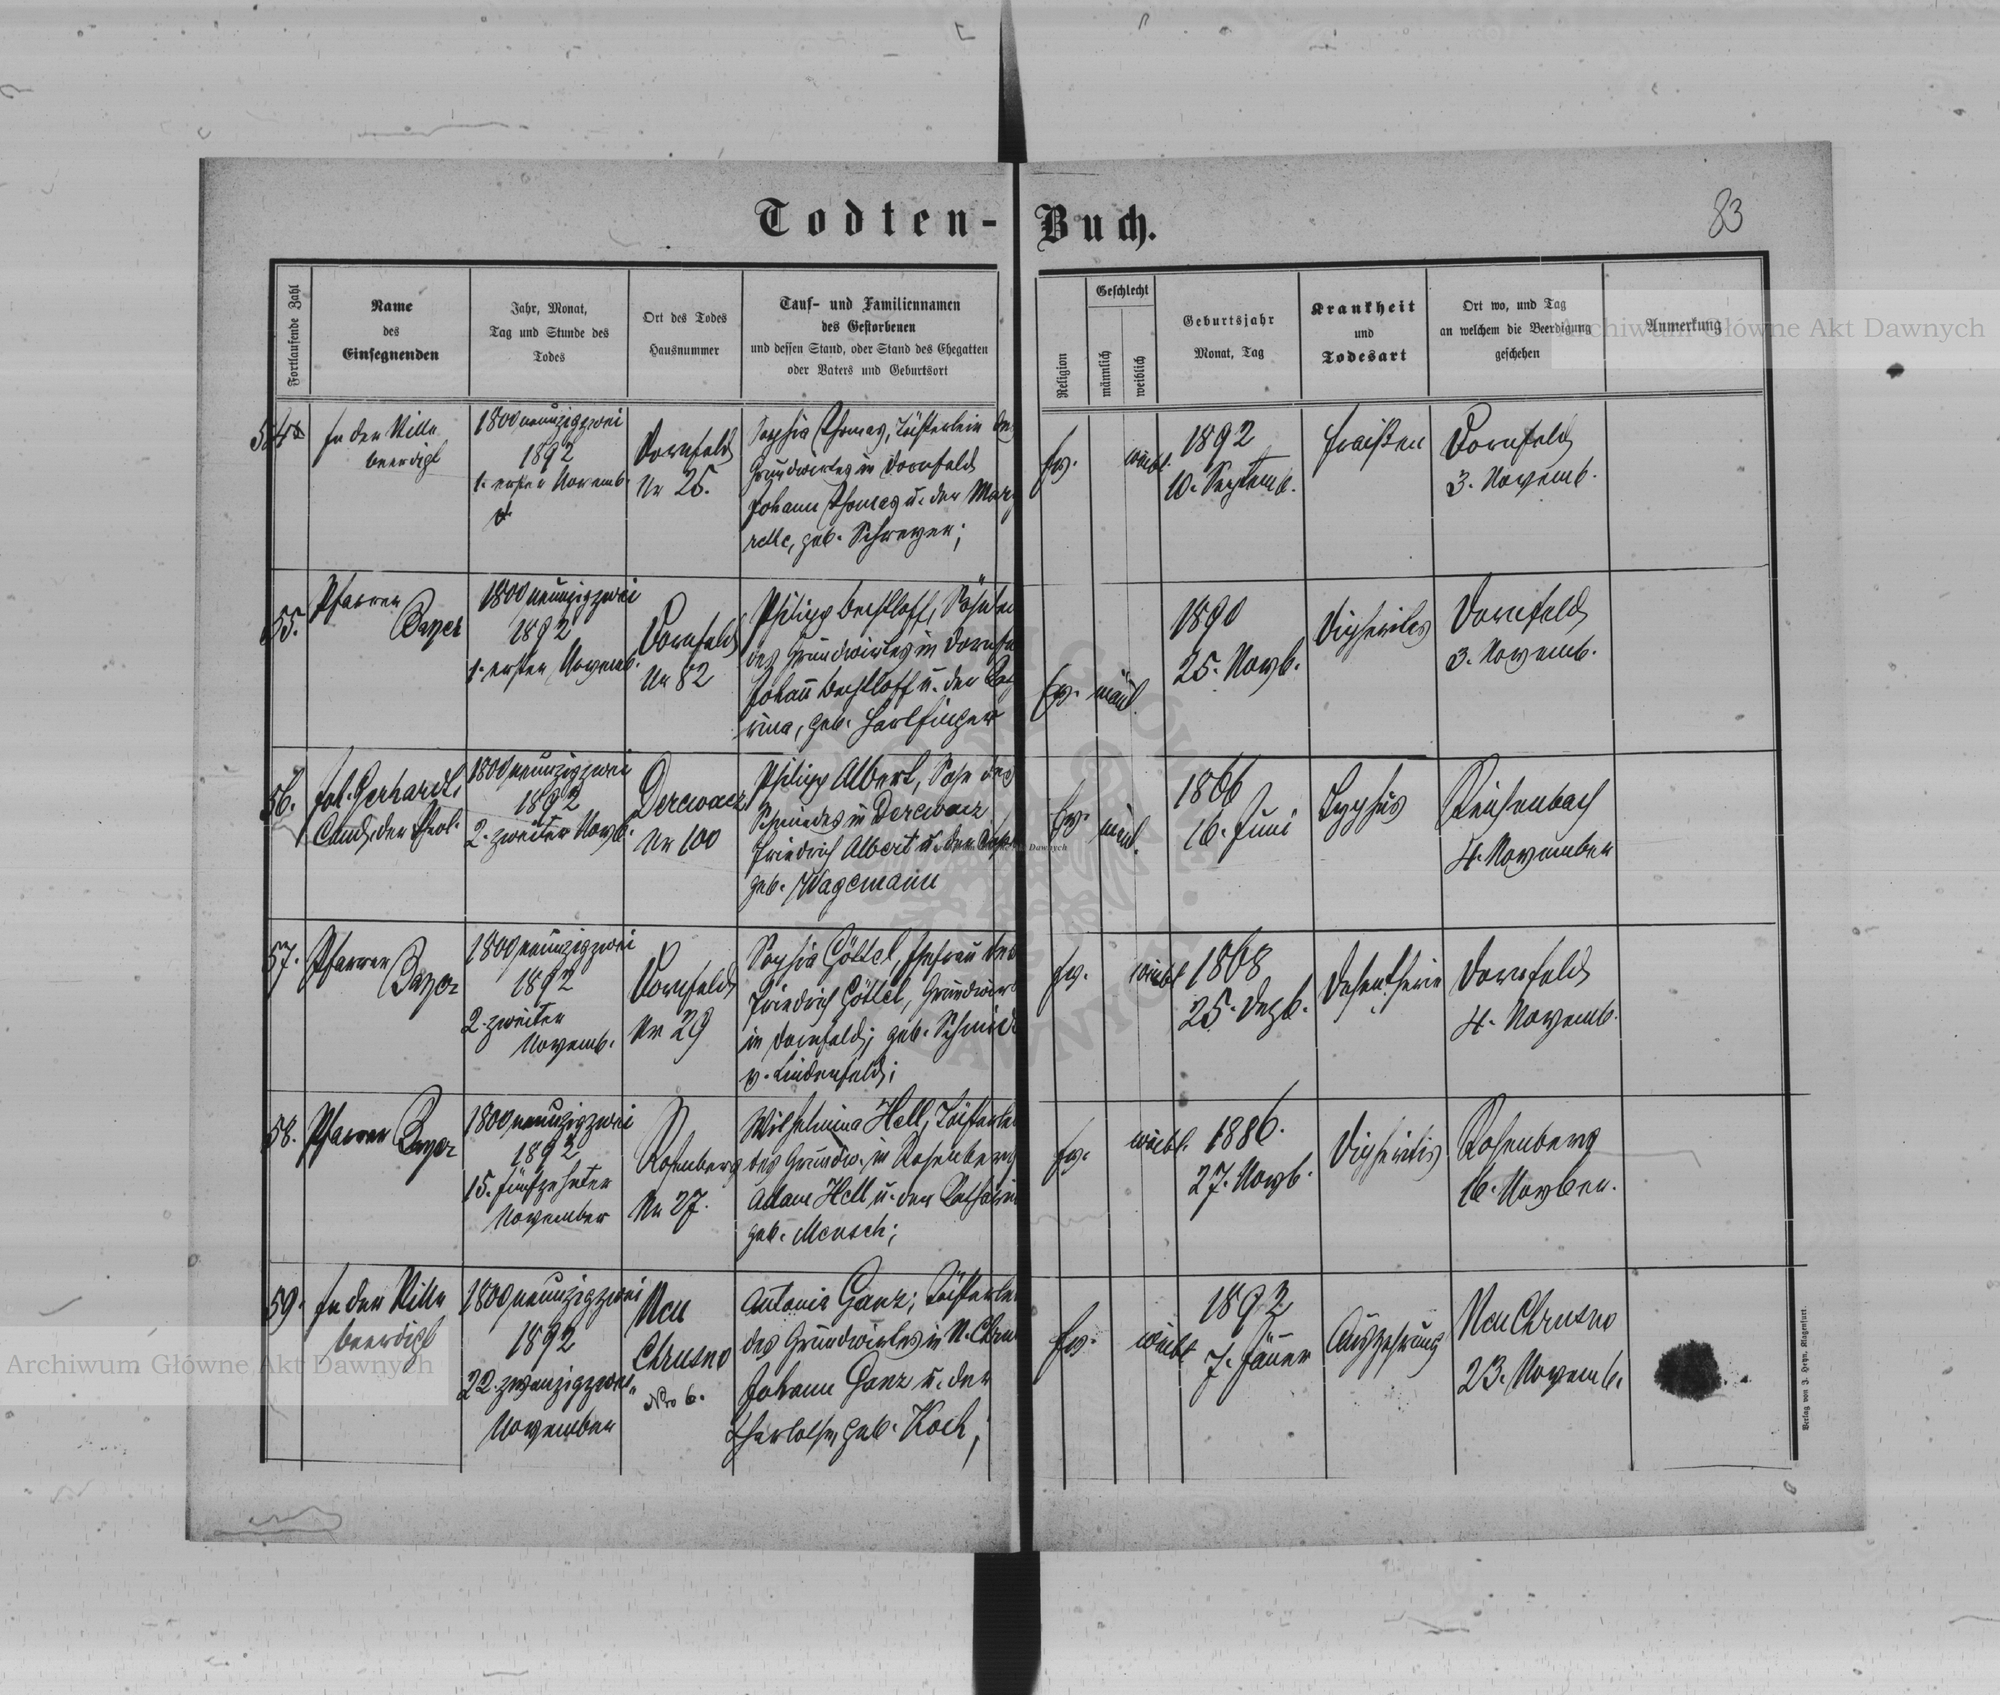 Todten-Buch.
83
Fortlaufende Zahl
Name
des
Einsegnenden
Jahr, Monat,
Tag und Stunde des
Todes
Ort des Todes
Hausnummer
Tauf- und Familiennamen
des Gestorbenen
und dessen Stand, oder Stand des Ehegatten
oder Vaters und Geburtsort
Religion
Geschlecht
männlich
weiblich
Geburtsjahr
Monat, Tag
Krankheit
und
Todesart
Ort wo, und Tag
an welchem die Beerdigung
geschehen
Anmerkung
Archiwum Główne Akt Dawnych
54.
In der Stille
beerdigt
1800neunzigzwei
1892
1. erster Novemb.
Dornfeld
Nr 25.
Sophia Thomas, Töchterlein des
Grundwirtes in Dornfeld
Johann Thomas u. der Mar
geb. Schreyer;
Ev.
weibl.
1892
10. Septemb.
Fraißen
Dornfeld
3. Novemb.
55.
Pfarrer
Bayer
1800neunzigzwei
1892
1. erster Novemb.
Dornfeld
Nr 82
Philipp Bechtloff, Söhnlein
des Grundwirtes in Dornfe
Johann Bechtloff u. der Cat
rina, geb. Harlfinger
Ev.
männl.
1890
25. Novb.
Diphteritis
Dornfeld
3. Novemb.
56.
Joh. Gerhardt,
Cand. der Theol.
1800neunzigzwei
1892
2. zweiter Novb.
Derewacz
Nr 100
Philipp Albert, Sohn des
Schmiedes in Derewacz
Friedrich Albert u. der
geb. Wagemann
Ev.
männl.
1866
16. Juni
Typhus
Reichenbach
4. November
57.
Pfarrer
Bayer
1800neunzigzwei
1892
2. zweiter
Novemb.
Dornfeld
Nr 29
Sophia Göttel, Ehefrau des
Friedrich Göttel, Grundwirt
in Dornfeld; geb. Schmidt
v. Lindenfeld;
Ev.
weibl.
1868
25. Dezb.
Dornfeld
4. Novemb.
58.
Pfarrer Bayer
1800neunzigzwei
1892
15. fünfzehnter
November
Rosenberg
Nr 27.
Wilhelmina Hell, Töchterlei
des Grundw. in Rosenberg
Adam Hell u. der Catharin
geb. Mensch;
Ev.
weibl.
1886.
27. Novb.
Diphteritis
Rosenberg
16. Novber.
59.
In der Stille
beerdigt
1800neunzigzwei
1892
22. zwanzigzwei
November
Neu
Chrusno
Nro 6.
Antonia Ganz; Töchterlei
des Grundwirtes in N. Chru
Johann Ganz u. der
geb. Koch;
Ev.
weibl.
1892
7. Jänner
Auszehrung
Neu Chrusno
23. Novemb.
Archiwum Główne Akt Dawnych
Verlag von J. Heyn, Klagenfurt.